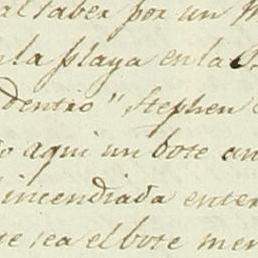 al saber por un
la playa en la
dentro" Stephen
o aqui un bote an
incendiada enter
e sea el bote men